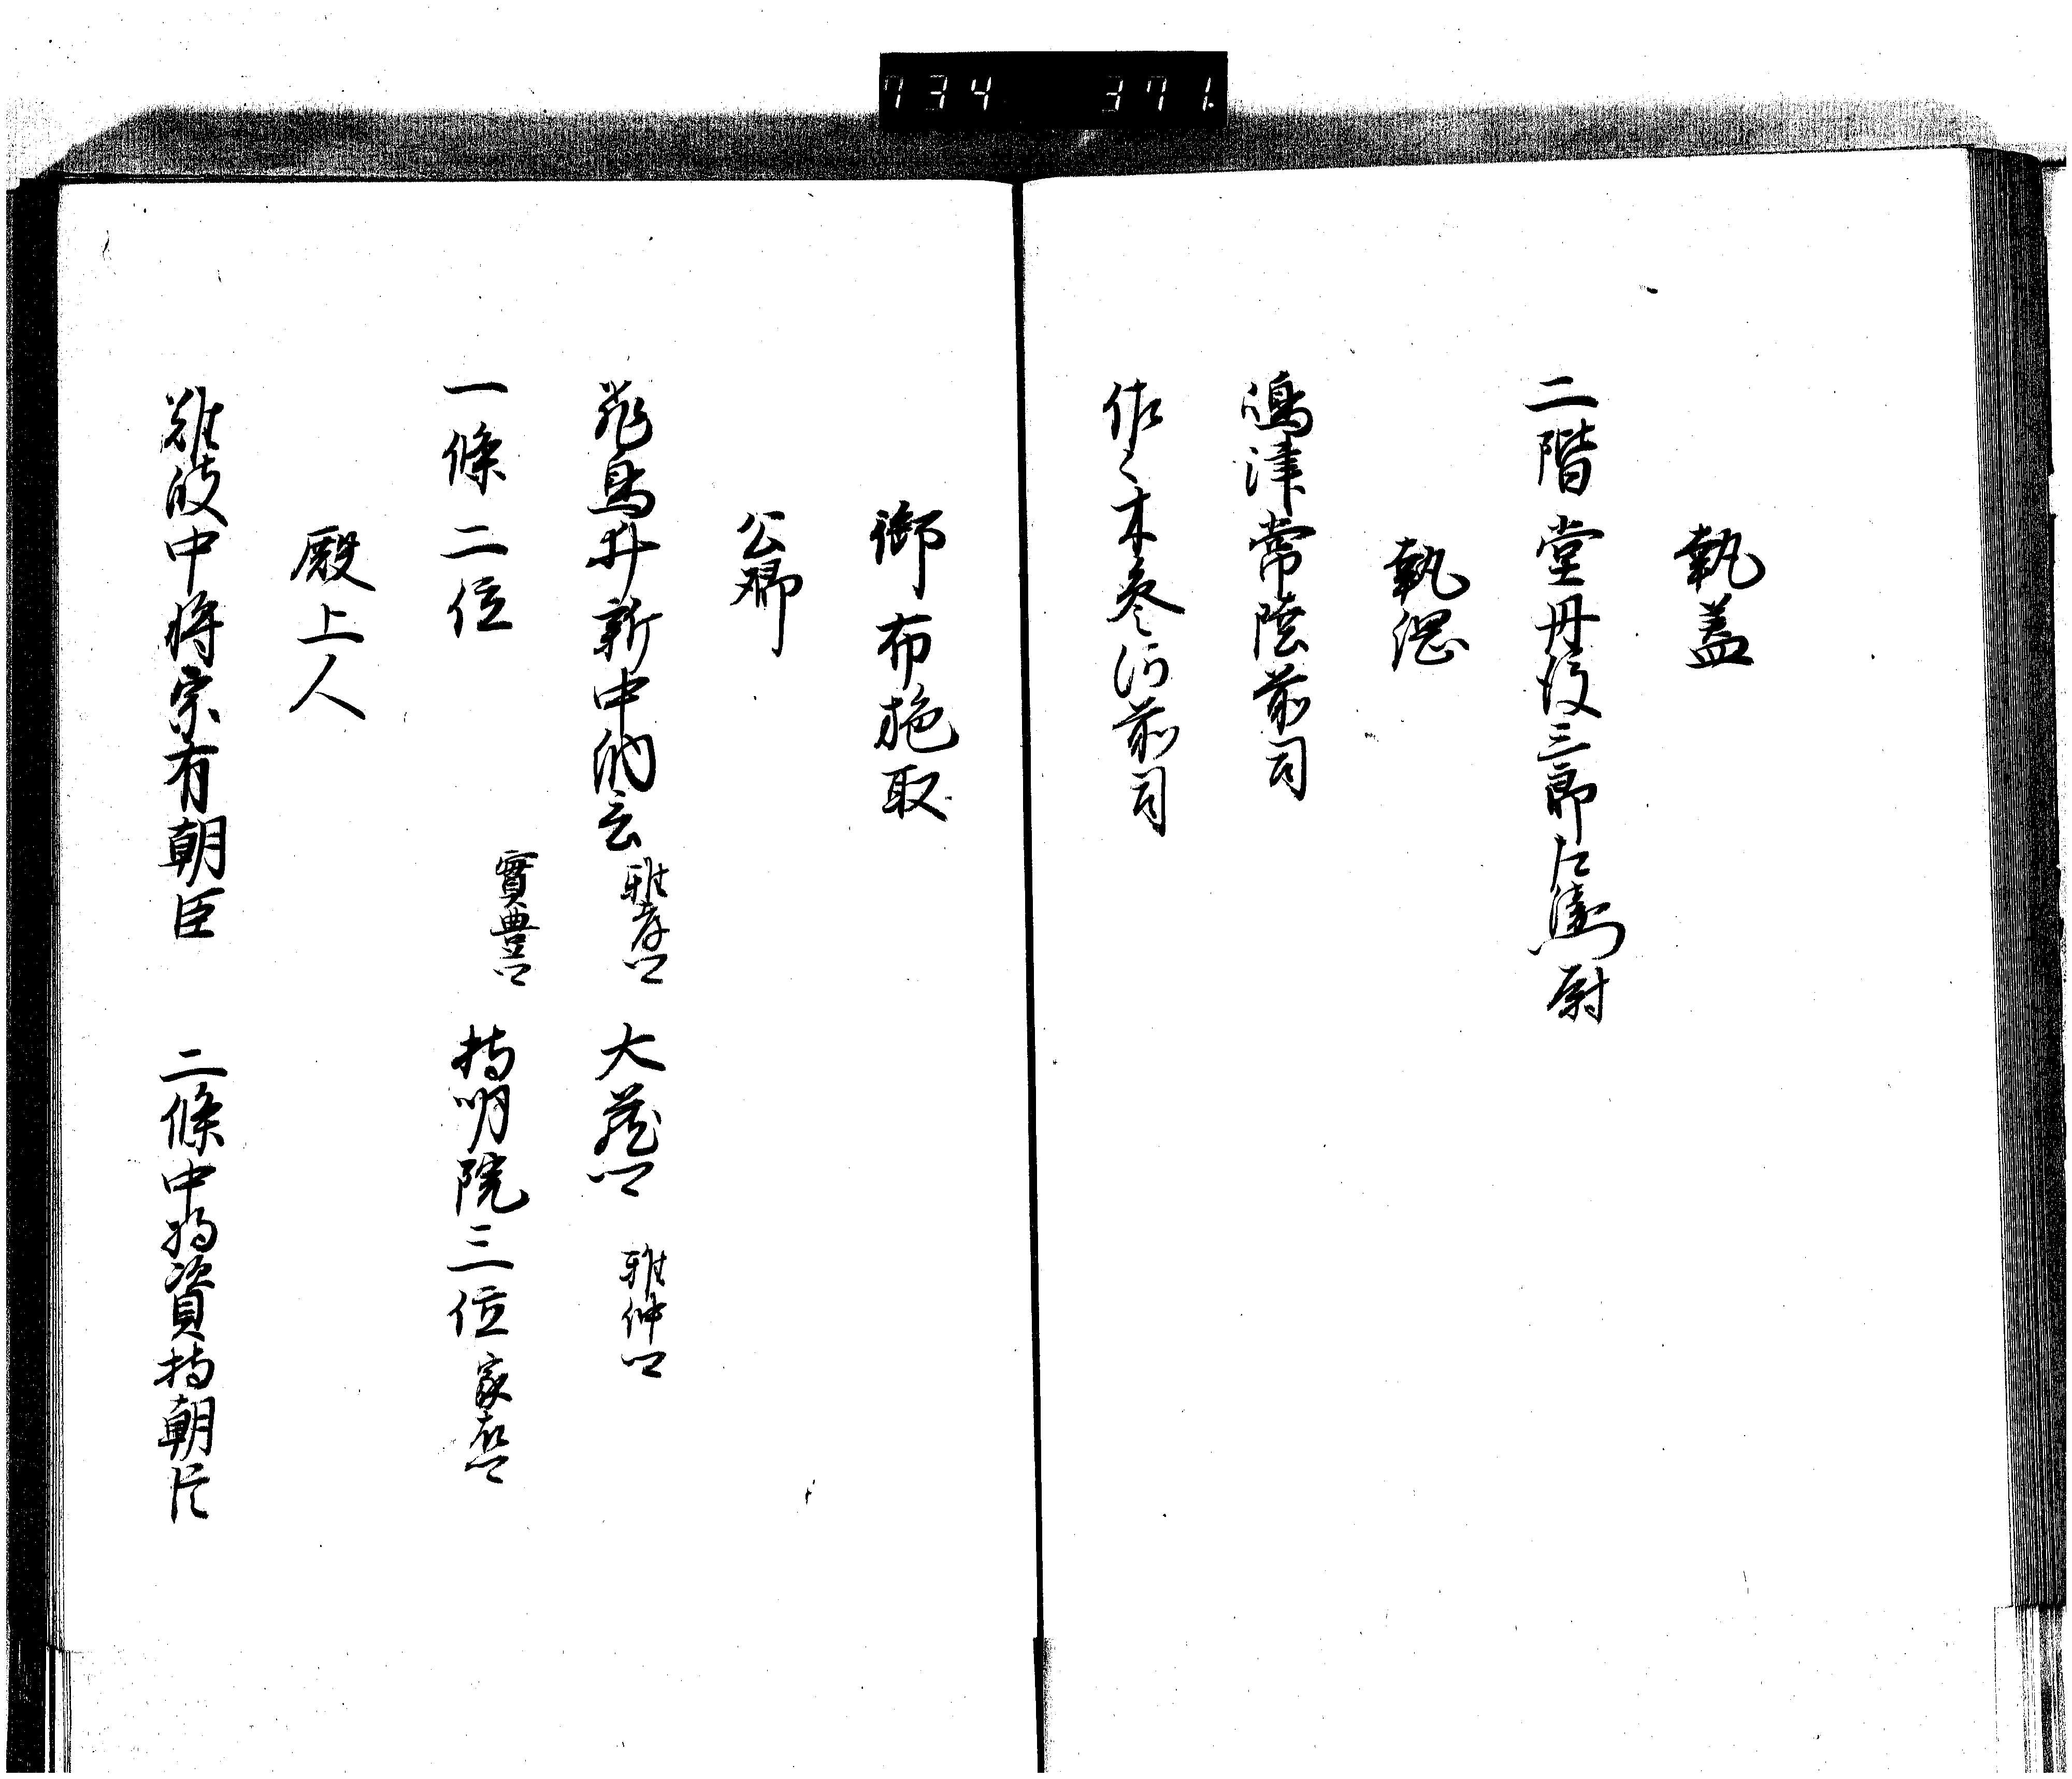 734 371
執盖
二階堂丹後三郎左衛門尉
執綱
嶋津常陸前司
佐々木参河前司
御布施取
公卿
飛鳥井新中納言 雅孝卿 大蔵卿 雅仲卿
一條二位 實豊卿 持明院三位 家藤卿
殿上人
難波中将宗有朝臣 二條中将資持朝臣